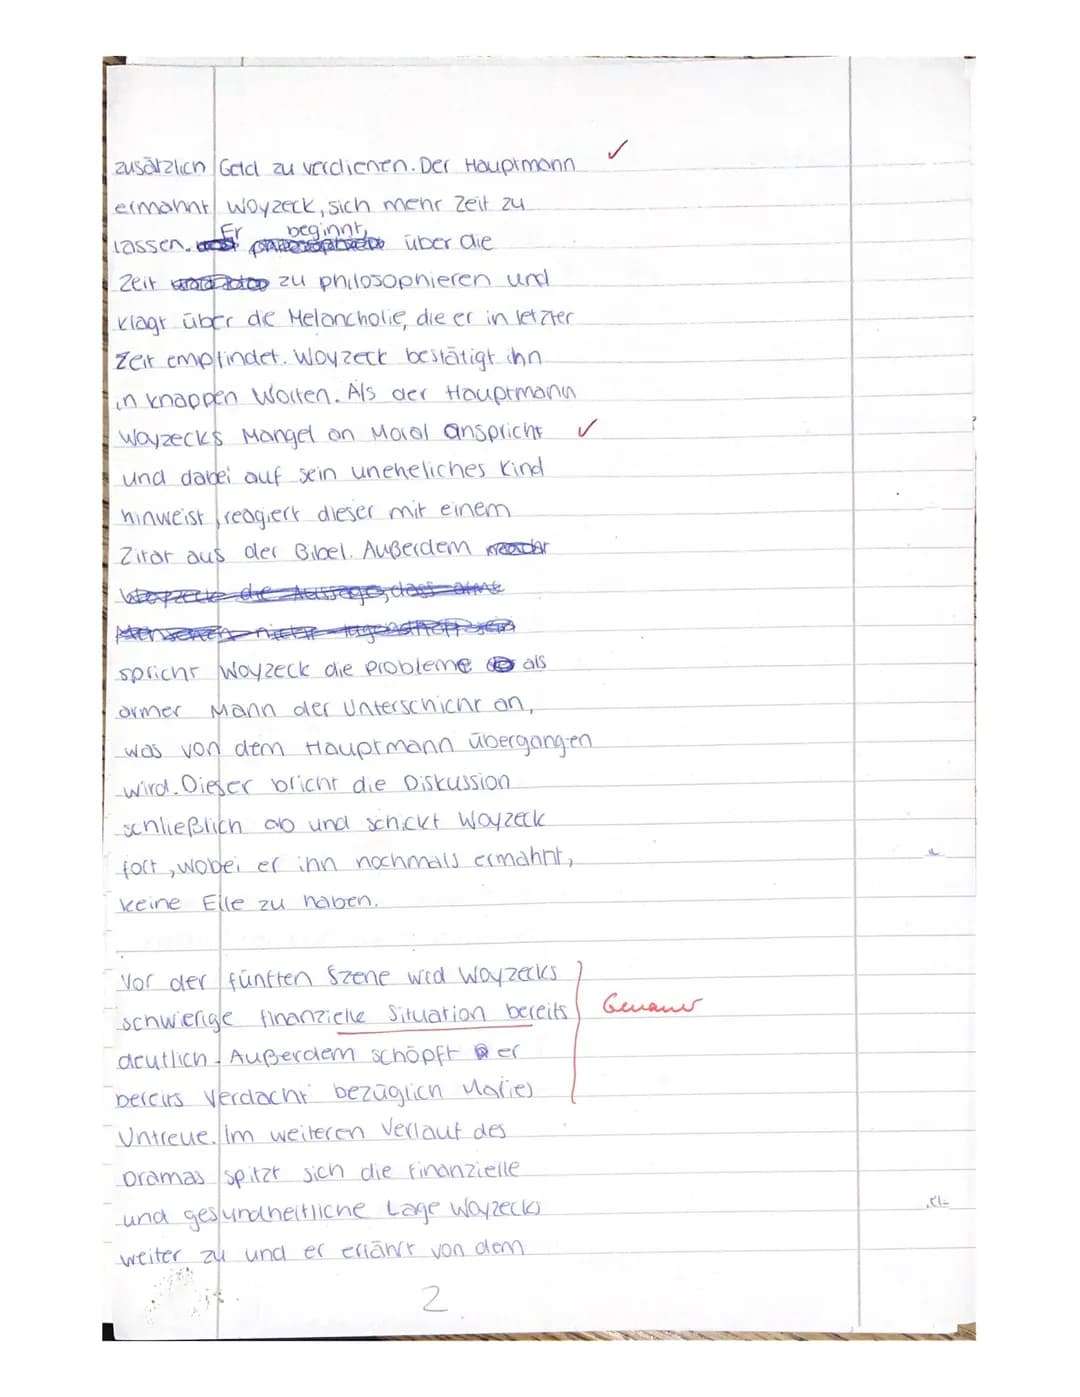 zusätzlich Geld zu verdienen. Der Hauptmann ✓
ermahnt Woyzeck, sich mehr Zeit zu
lassen. Er beginnt, über die
Zeit zu philosophieren und
klagt über die Melancholie, die er in letzter
Zeit empfindet. Woyzeck bestätigt ihn
in knappen Worten. Als der Hauptmann
Woyzecks Mangel an Moral anspricht ✓
und dabei auf sein uneheliches Kind
hinweist, reagiert dieser mit einem
Zitat aus der Bibel. Außerdem
die Aussage, dass arme
Menschen nicht tugendhaft sein
spricht Woyzeck die Probleme als
armer Mann der Unterschicht an,
was von dem Hauptmann übergangen
wird. Dieser bricht die Diskussion
schließlich ab und schickt Woyzeck
fort, wobei er ihn nochmals ermahnt,
keine Eile zu haben.
Vor der fünften Szene wird Woyzecks
schwierige finanzielle Situation bereits Genauer
deutlich. Außerdem schöpft er
bereits Verdacht bezüglich Maries
Untreue. Im weiteren Verlauf des
Dramas spitzt sich die finanzielle
und gesundheitliche Lage Woyzecks
weiter zu und er erfährt von dem
2